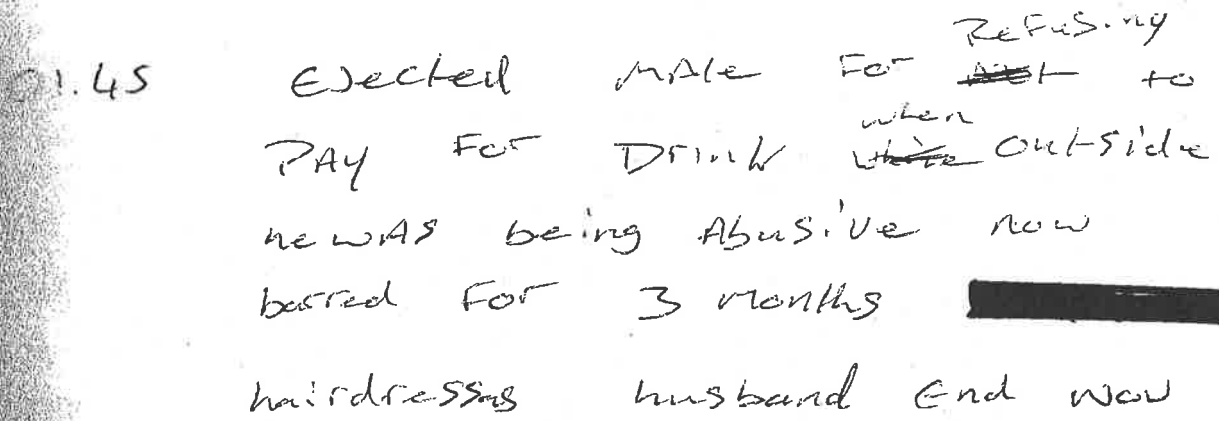 01.45 Ejected male for Refusing to
Pay for Drink when outside
he was being Abusive now
barred for 3 months
hairdressers husband End Now